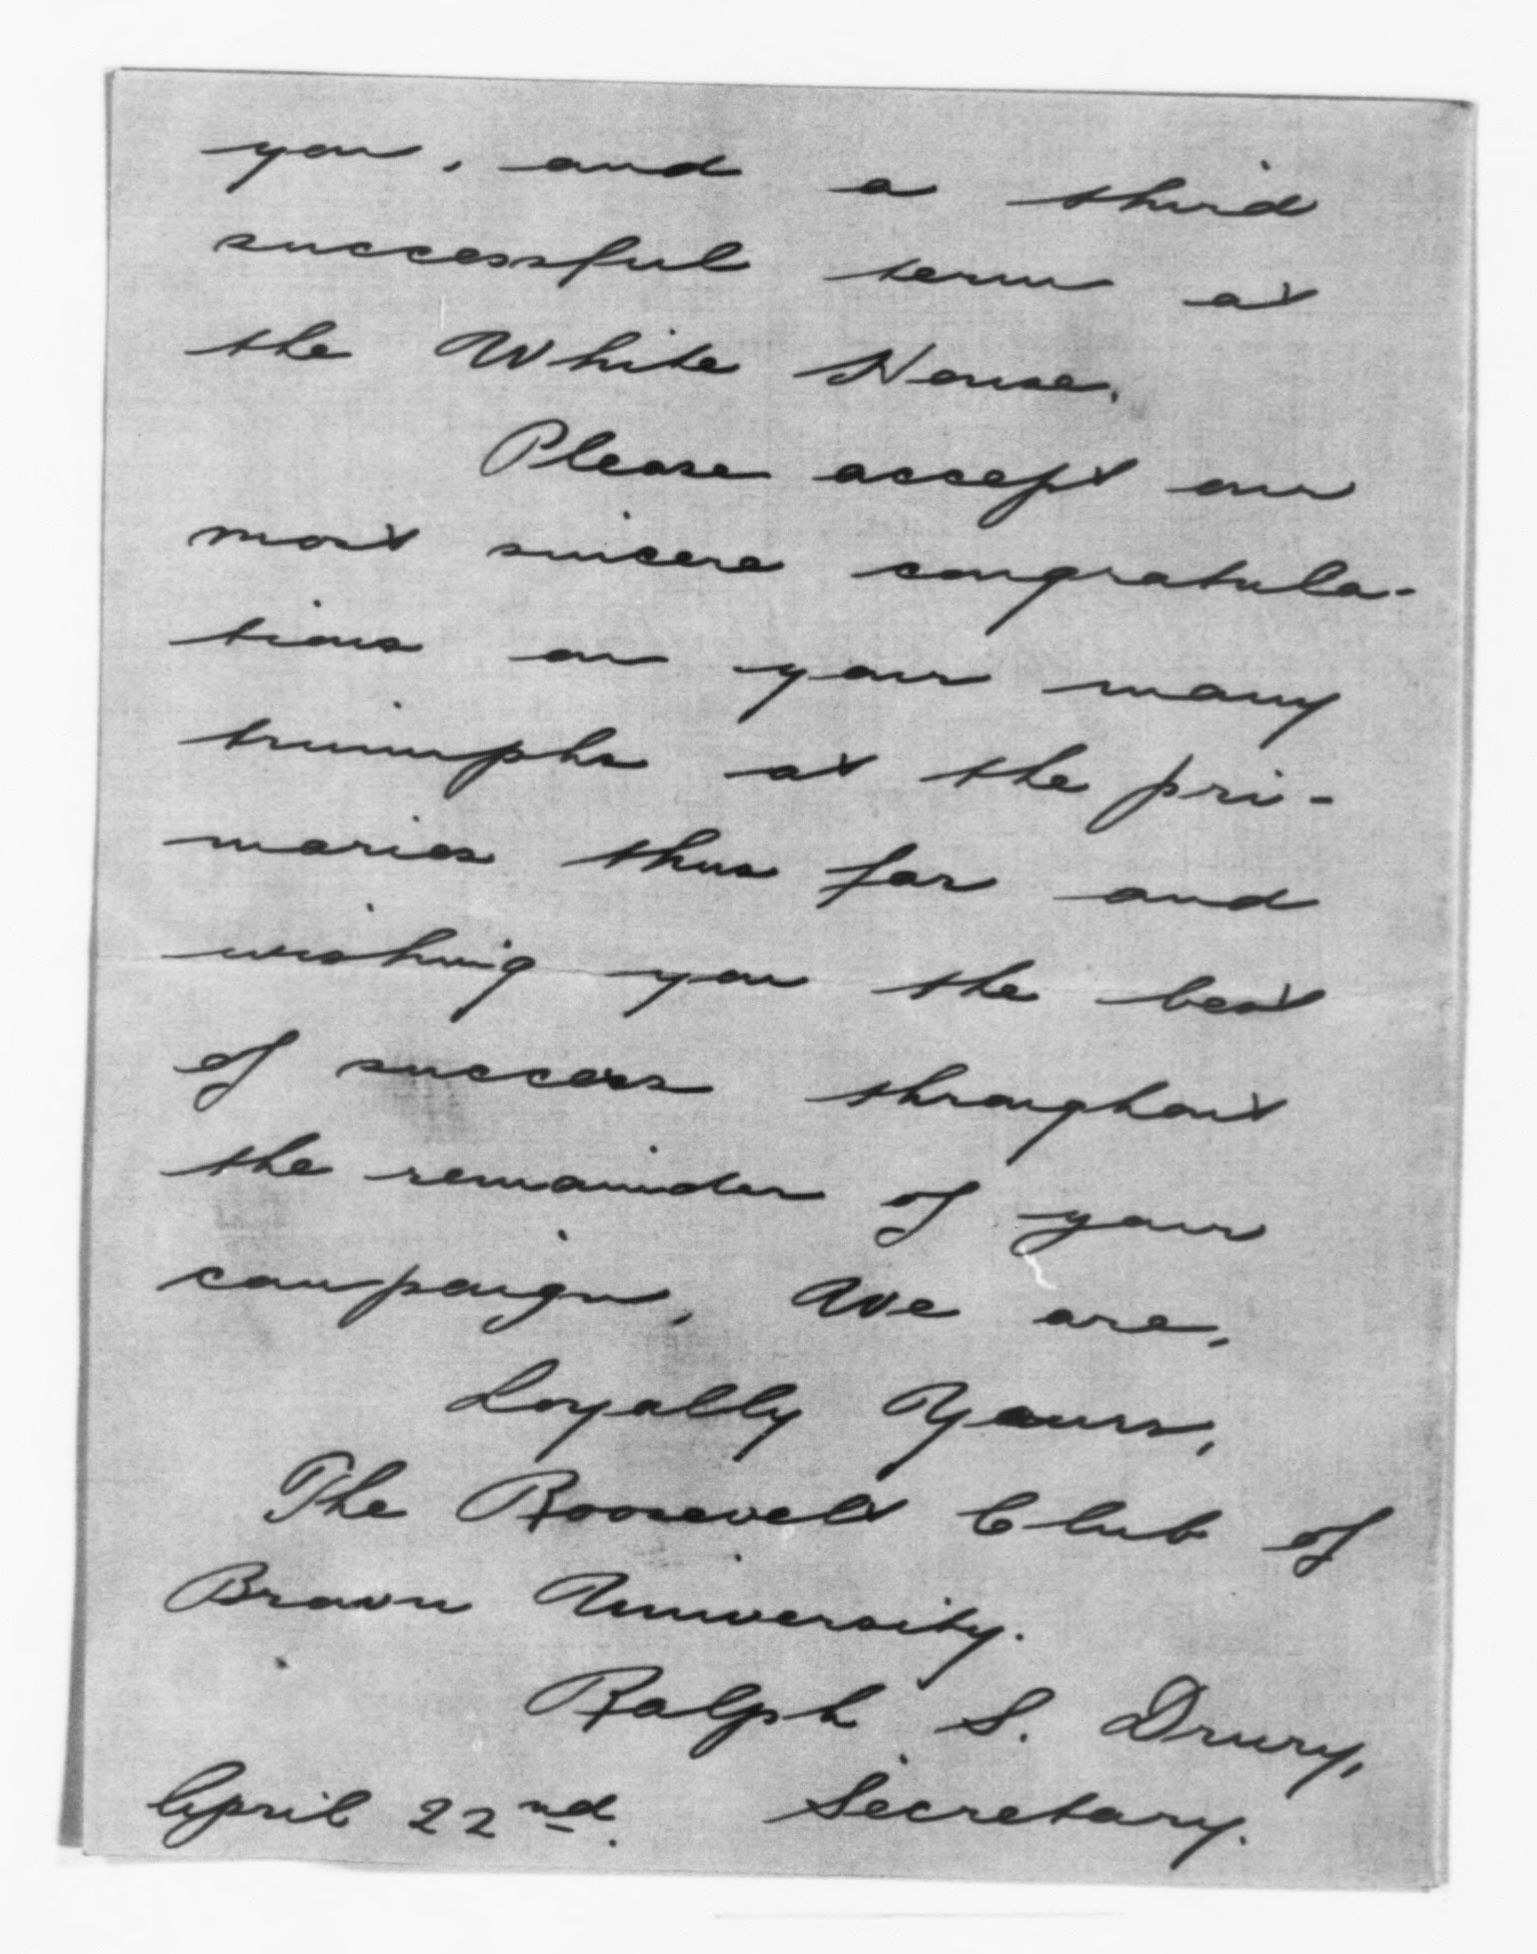 you, and a third
successful term at
the White House.
Please accept our
most sincere congratula-
tions on your many
triumphs at the pri-
maries thus far and
wishing you the best
of success throughout
the remainder of your
campaign, We are,
Loyally Yours,
The Roosevelt Club of
Brown University.
Ralph S. Drury,
April 22nd. Secretary.